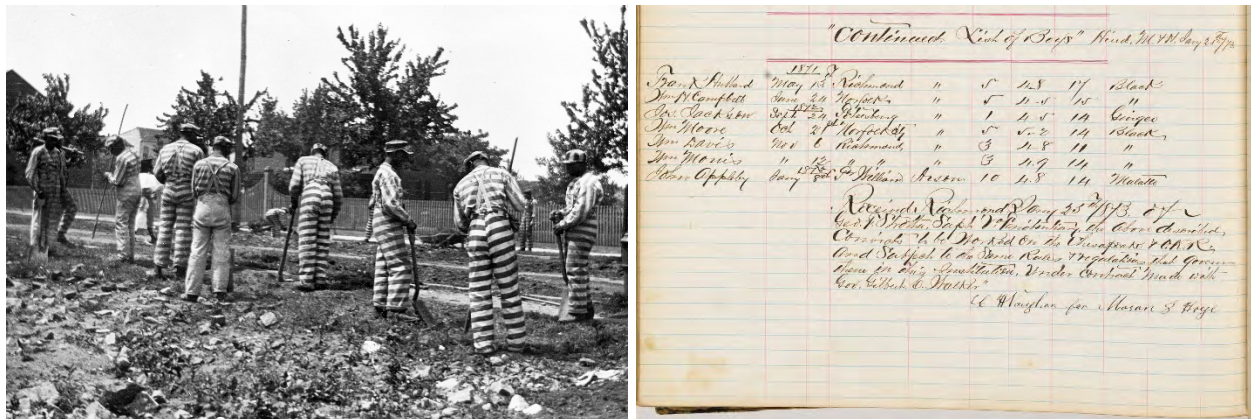 "Continued List of Boys" Rind. M & H. Jany 25th/73
1871
Frank Hubard May 13 Richmond " 5 4.8 17 Black
Wm H Campbell June 24 Norfolk " 5 4-5 15 "
1872
Joe Jackson Sept 24 " 1 4.5 14 Ginger
Wm Moore Oct 21st Norfolk City " 5 5-2 14 Black
Wm Davis Nov 6 Richmond " 3 4.8 11 "
Wm Morris " 12 " " 3 4.9 14 "
1873
Appleby Jany Pr. William Arson 10 4.8 14 Mulatto
Received, Richmond Jany 25th 1873 of
Geo F Strother, Supt Va Penitentiary, the above described
Convicts to be Worked on the Chesapeake & O R.R.
And Subject to the Same Rules & regulations that govern
them in this Institution. Under Contract Made with
Gov. Gilbert C. Walker"
for Mason & Hoge